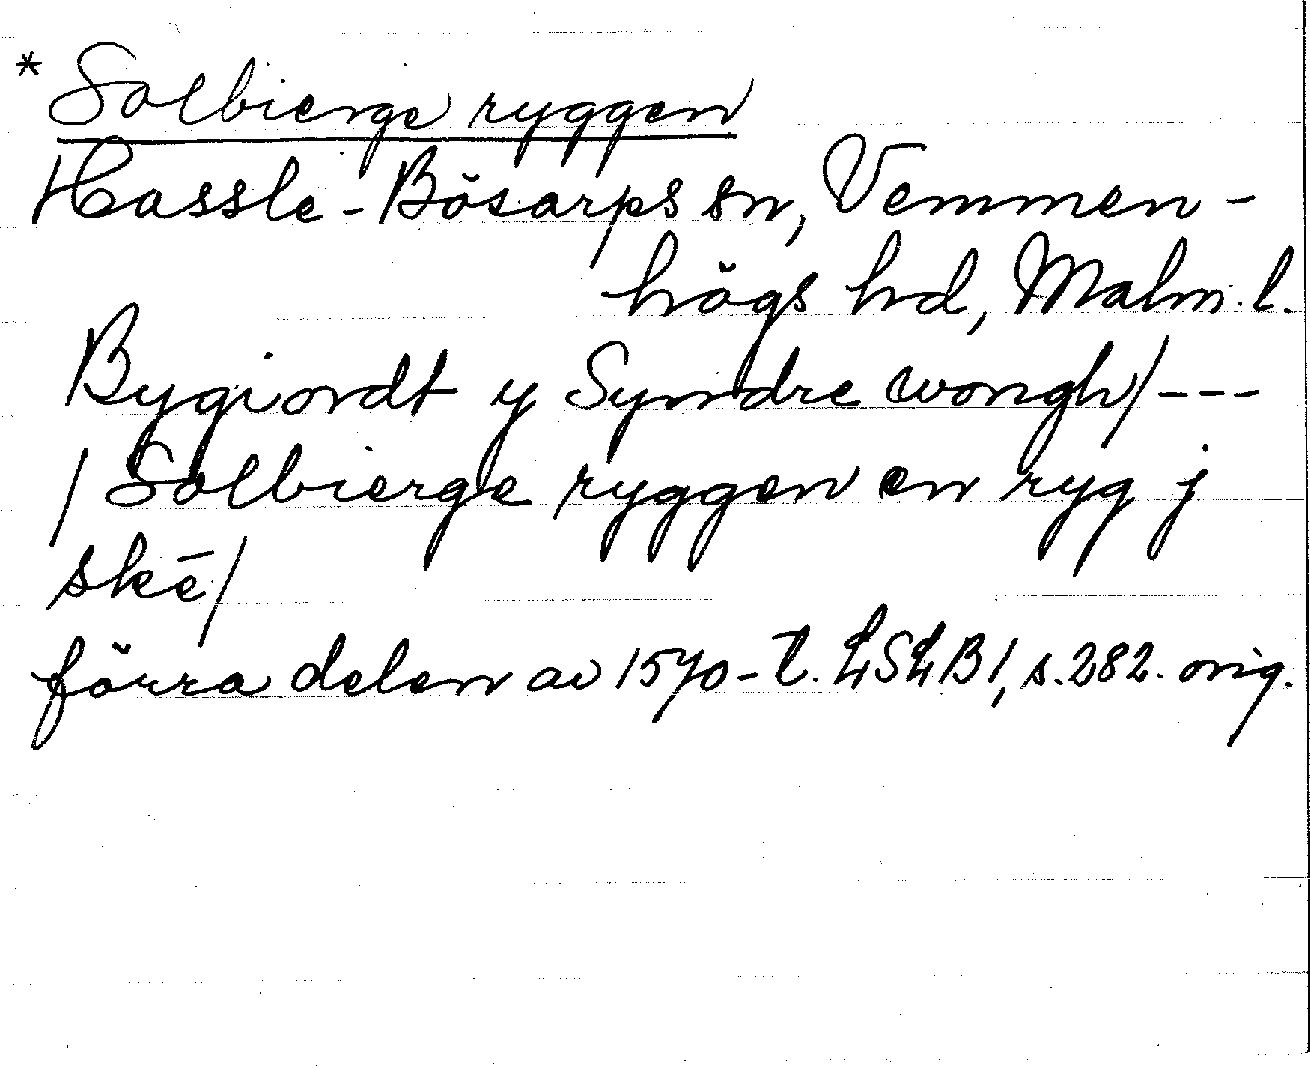 * Solbierge ryggen
Hassle-Bösarps sn, Vemmen-
högs hd, Malm. l.
Bygiordt y Syndre wongh/---
/Solbierge ryggen en ryg j
skē/
förra delen av 1570-t. LSLB1, s. 282. orig.